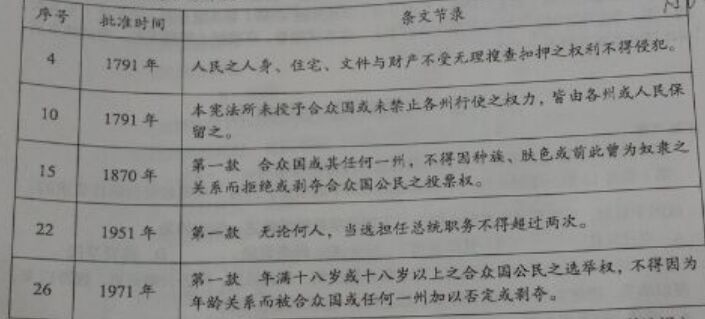 序号 批准时间 条文节录
4 1791年 人民之人身、住宅、文件与财产不受无理搜查扣押之权利不得侵犯。
10 1791年 本宪法所未授予合众国或未禁止各州行使之权力，皆由各州或人民保
留之。
15 1870年 第一款 合众国或其任何一州，不得因种族、肤色或前此曾为奴隶之
关系而拒绝或剥夺合众国公民之投票权。
22 1951年 第一款 无论何人，当选担任总统职务不得超过两次。
26 1971年 第一款 年满十八岁或十八岁以上之合众国公民之选举权，不得因为
年龄关系而被合众国或任何一州加以否定或剥夺。